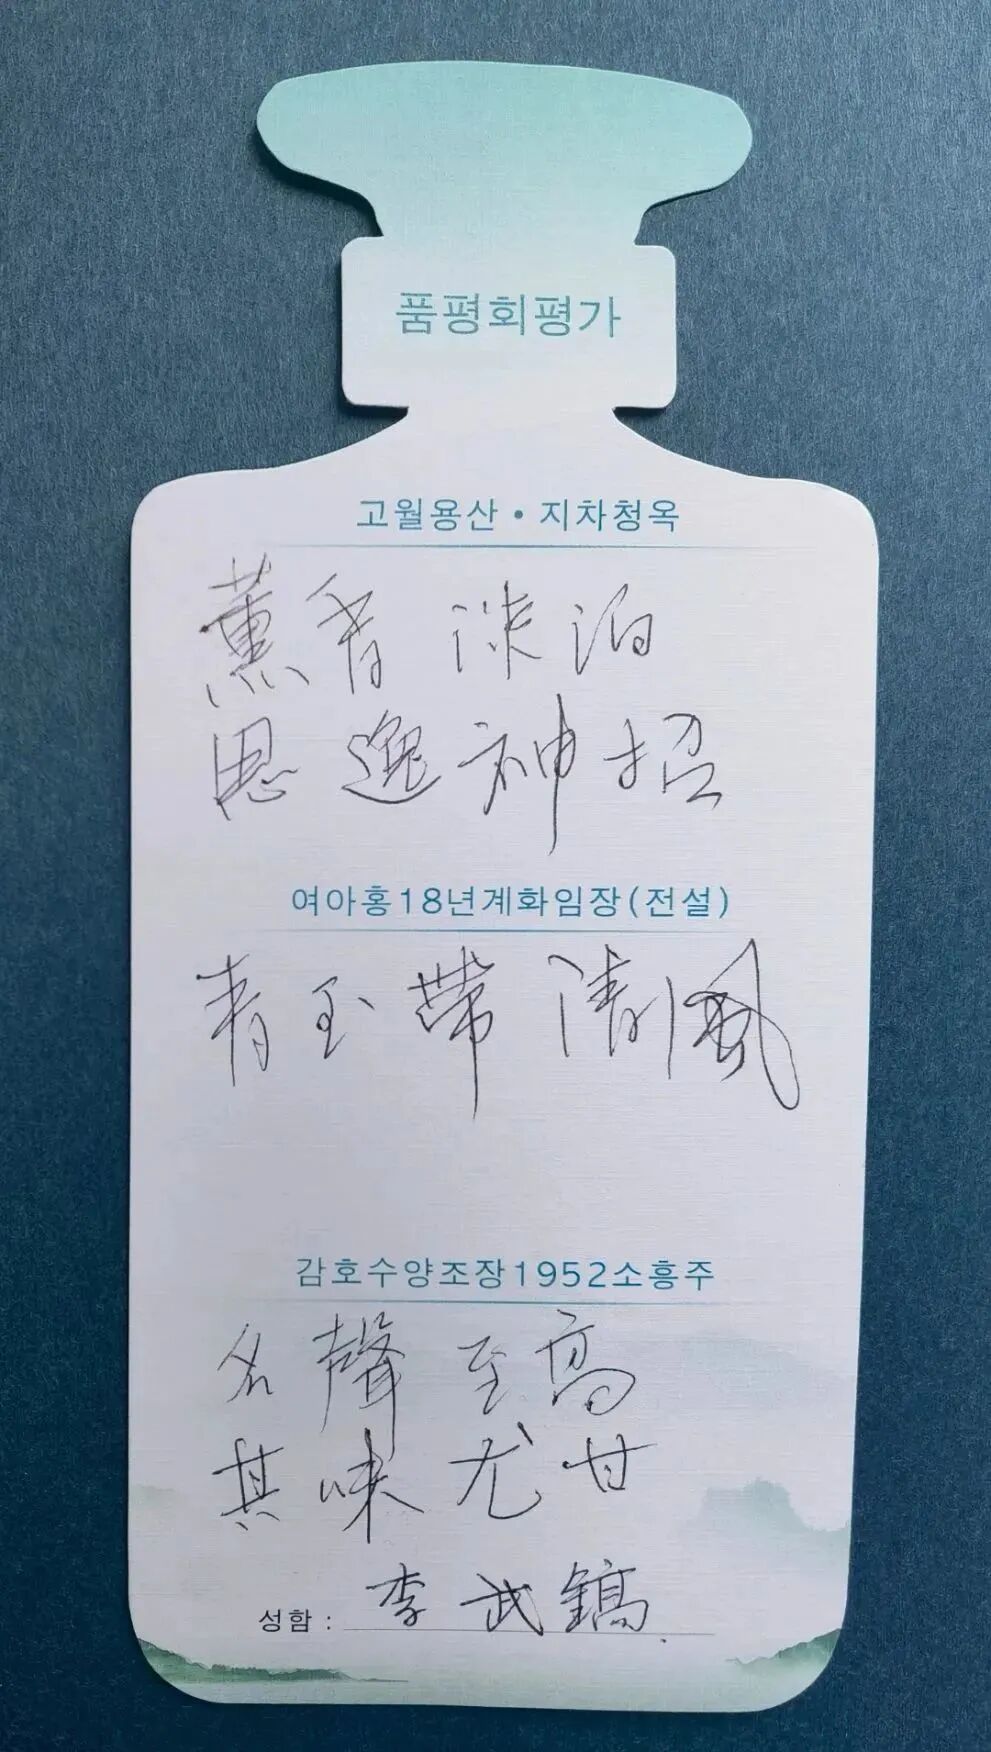 품평회평가
고월용산·지차청옥
薰香 淡泊
思逸神招
여아홍18년계화임장(전설)
青玉帶 清風
감호수양조장1952소흥주
名聲至高
其味尤甘
성함: 李武鎬